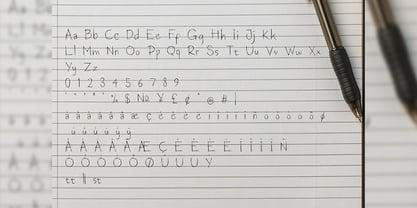 Aa Bb Cc Dd Ee Ff Gg Hh Ii Jj Kk
Ll Mm Nn Oo Pp Qq Rr Ss Tt Uu Vv Ww Xx
Yy Zz
0 1 2 3 4 5 6 7 8 9
% $ № ¥ £ ¢ @ # |
à á â ã ä å æ ç è é ê ë ì í î ï ñ ò ó ô õ ö ø
ù ú û ü ý ÿ
À Á Â Ã Ä Å Æ Ç È É Ê Ë Ì Í Î Ï Ñ
Ò Ó Ô Õ Ö Ø Ù Ú Û Ü Ý
tt ll st